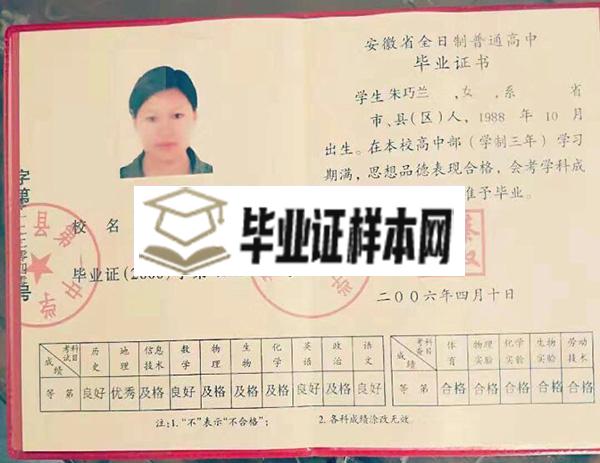 安徽省全日制普通高中
毕业证书
学生 朱巧兰 ,女 ,系 省
市、县(区)人, 1988 年 10 月
出生。在本校高中部(学制三年)学习
期满, 思想品德表现合格, 会考学科成
准予毕业。
校 名
毕业证样本网
毕业证(2006)
二00六年四月十日
考试科目 历史 地理 信息技术 数学 物理 生物 化学 英语 政治 语文
成绩等第 良好 优秀 及格 良好 及格 及格 及格 良好 及格 良好
考查科目 体育 物理实验 化学实验 生物实验 劳动技术
成绩等第 合格 合格 合格 合格 合格
注:1. "不"表示"不合格"; 2. 各科成绩涂改无效。